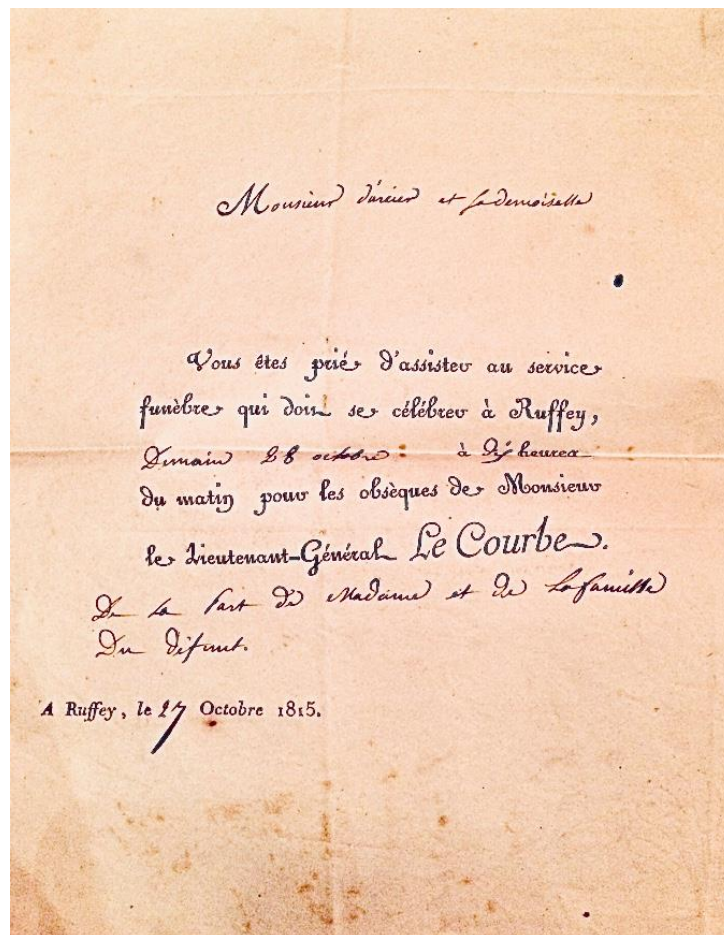 Monsieur d'arcier et sa demoiselle
Vous êtes prié d'assister au service
funèbre qui doit se célébrer à Ruffey,
Demain 28 octobre à dix heures
du matin pour les obsèques de Monsieur
le Lieutenant-Général Le Courbe.
De la Part de Madame et de La famille
Du défunt.
A Ruffey, le 27 Octobre 1815.